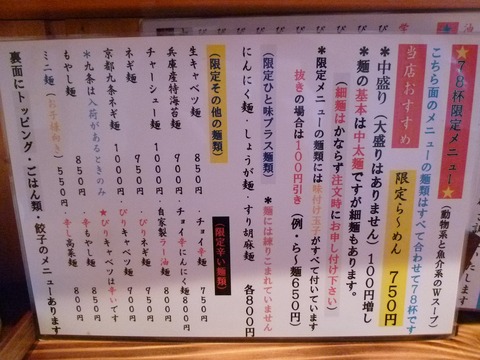 ★78杯限定メニュー★
(動物系と魚介系のWスープ)
こちら面のメニューの麺類はすべて合わせて78杯です
当店おすすめ
限定ら~めん 750円
*中盛り(大盛りはありません)100円増し
*麺の基本は中太麺ですが細麺もあります。
(細麺はかならず注文時にお申し付け下さい)
*限定メニューの麺類には味付け玉子がすべて付いています
抜きの場合は100円引き(例・ら~麺650円)
(限定ひと味プラス麺類)
*麺には練りこまれていません
にんにく麺・しょうが麺・すり胡麻麺 各800円
(限定その他の麺類)
生キャベツ麺 850円
兵庫産特海苔麺 900円
チャーシュー麺 1000円
ネギ麺 950円
京都九条ネギ麺 1000円
*九条は入荷があるときのみ
もやし麺 850円
ミニ麺(お子様向き) 550円
(限定辛い麺類)
・チョイ辛麺 750円
・チョイ辛にんにく麺 800円
・自家製ラー油麺 800円
・ぴりネギ麺 950円
・ぴりキャベツ麺 900円
★ぴりキャベツは辛いです
・辛もやし麺 850円
・辛し高菜麺 800円
裏面にトッピング・ごはん類・餃子のメニューあります